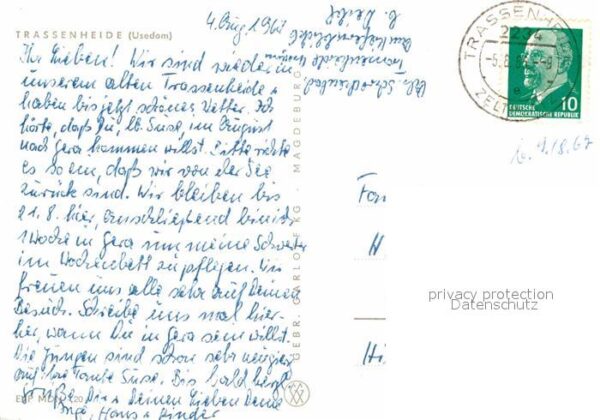 4. Aug. 1967
TRASSENHEIDE (Usedom)
Ihr Lieben! Wir sind wieder in
unserem alten Trassenheide u.
haben bis jetzt schönes Wetter. Ich
hörte, daß Du, lb. Suse, im August
nach Gera kommen willst. Bitte richte
es so ein, daß wir von der See
zurück sind. Wir bleiben bis
21.8. hier, anschließend bin ich
1 Woche in Gera um meine Schwester
im Wochenbett zu pflegen. Wir
freuen uns alle sehr auf Deinen
Besuch. Schreibe uns mal hier-
her, wann Du in Gera sein willst.
Die Jungen sind schon sehr neugierig
auf ihre Tante Suse. Bis bald herzl.
Grüße Dir u. Deinen Lieben Deine
Inge, Hans u. Kinder
GEBR. GARLOFF KG - MAGDEBURG
TRASSENH
2234
-5.8.
ZELT
10
DEUTSCHE
DEMOKRATISCHE REPUBLIK
Fa
H
Hi
privacy protection
Datenschutz